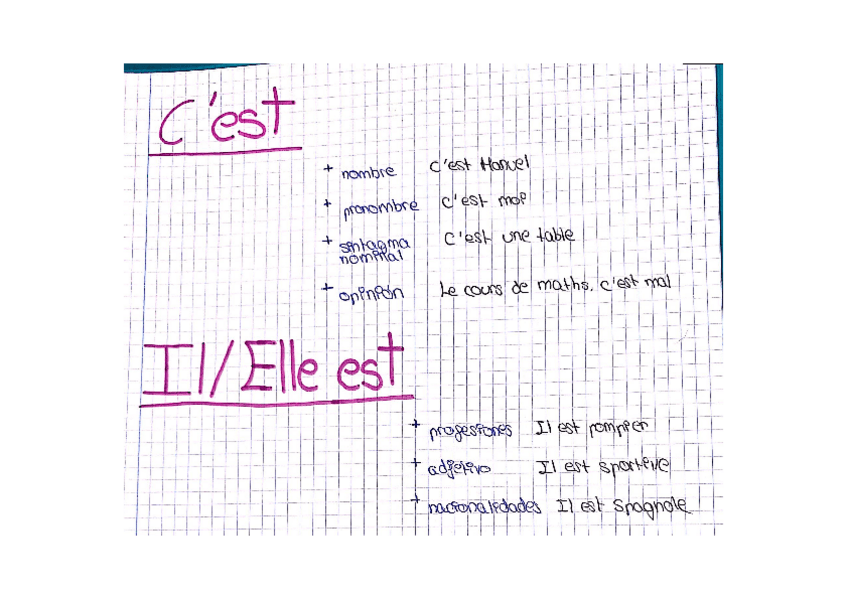 C'est
+ nombre C'est Manuel
+ pronombre C'est moi
+ sintagma C'est une table
nominal
+ opinión Le cours de maths. C'est mal
Il/Elle est
+ profesiones Il est pompier
+ adjetivo Il est sportive
+ nacionalidades Il est Spagnole